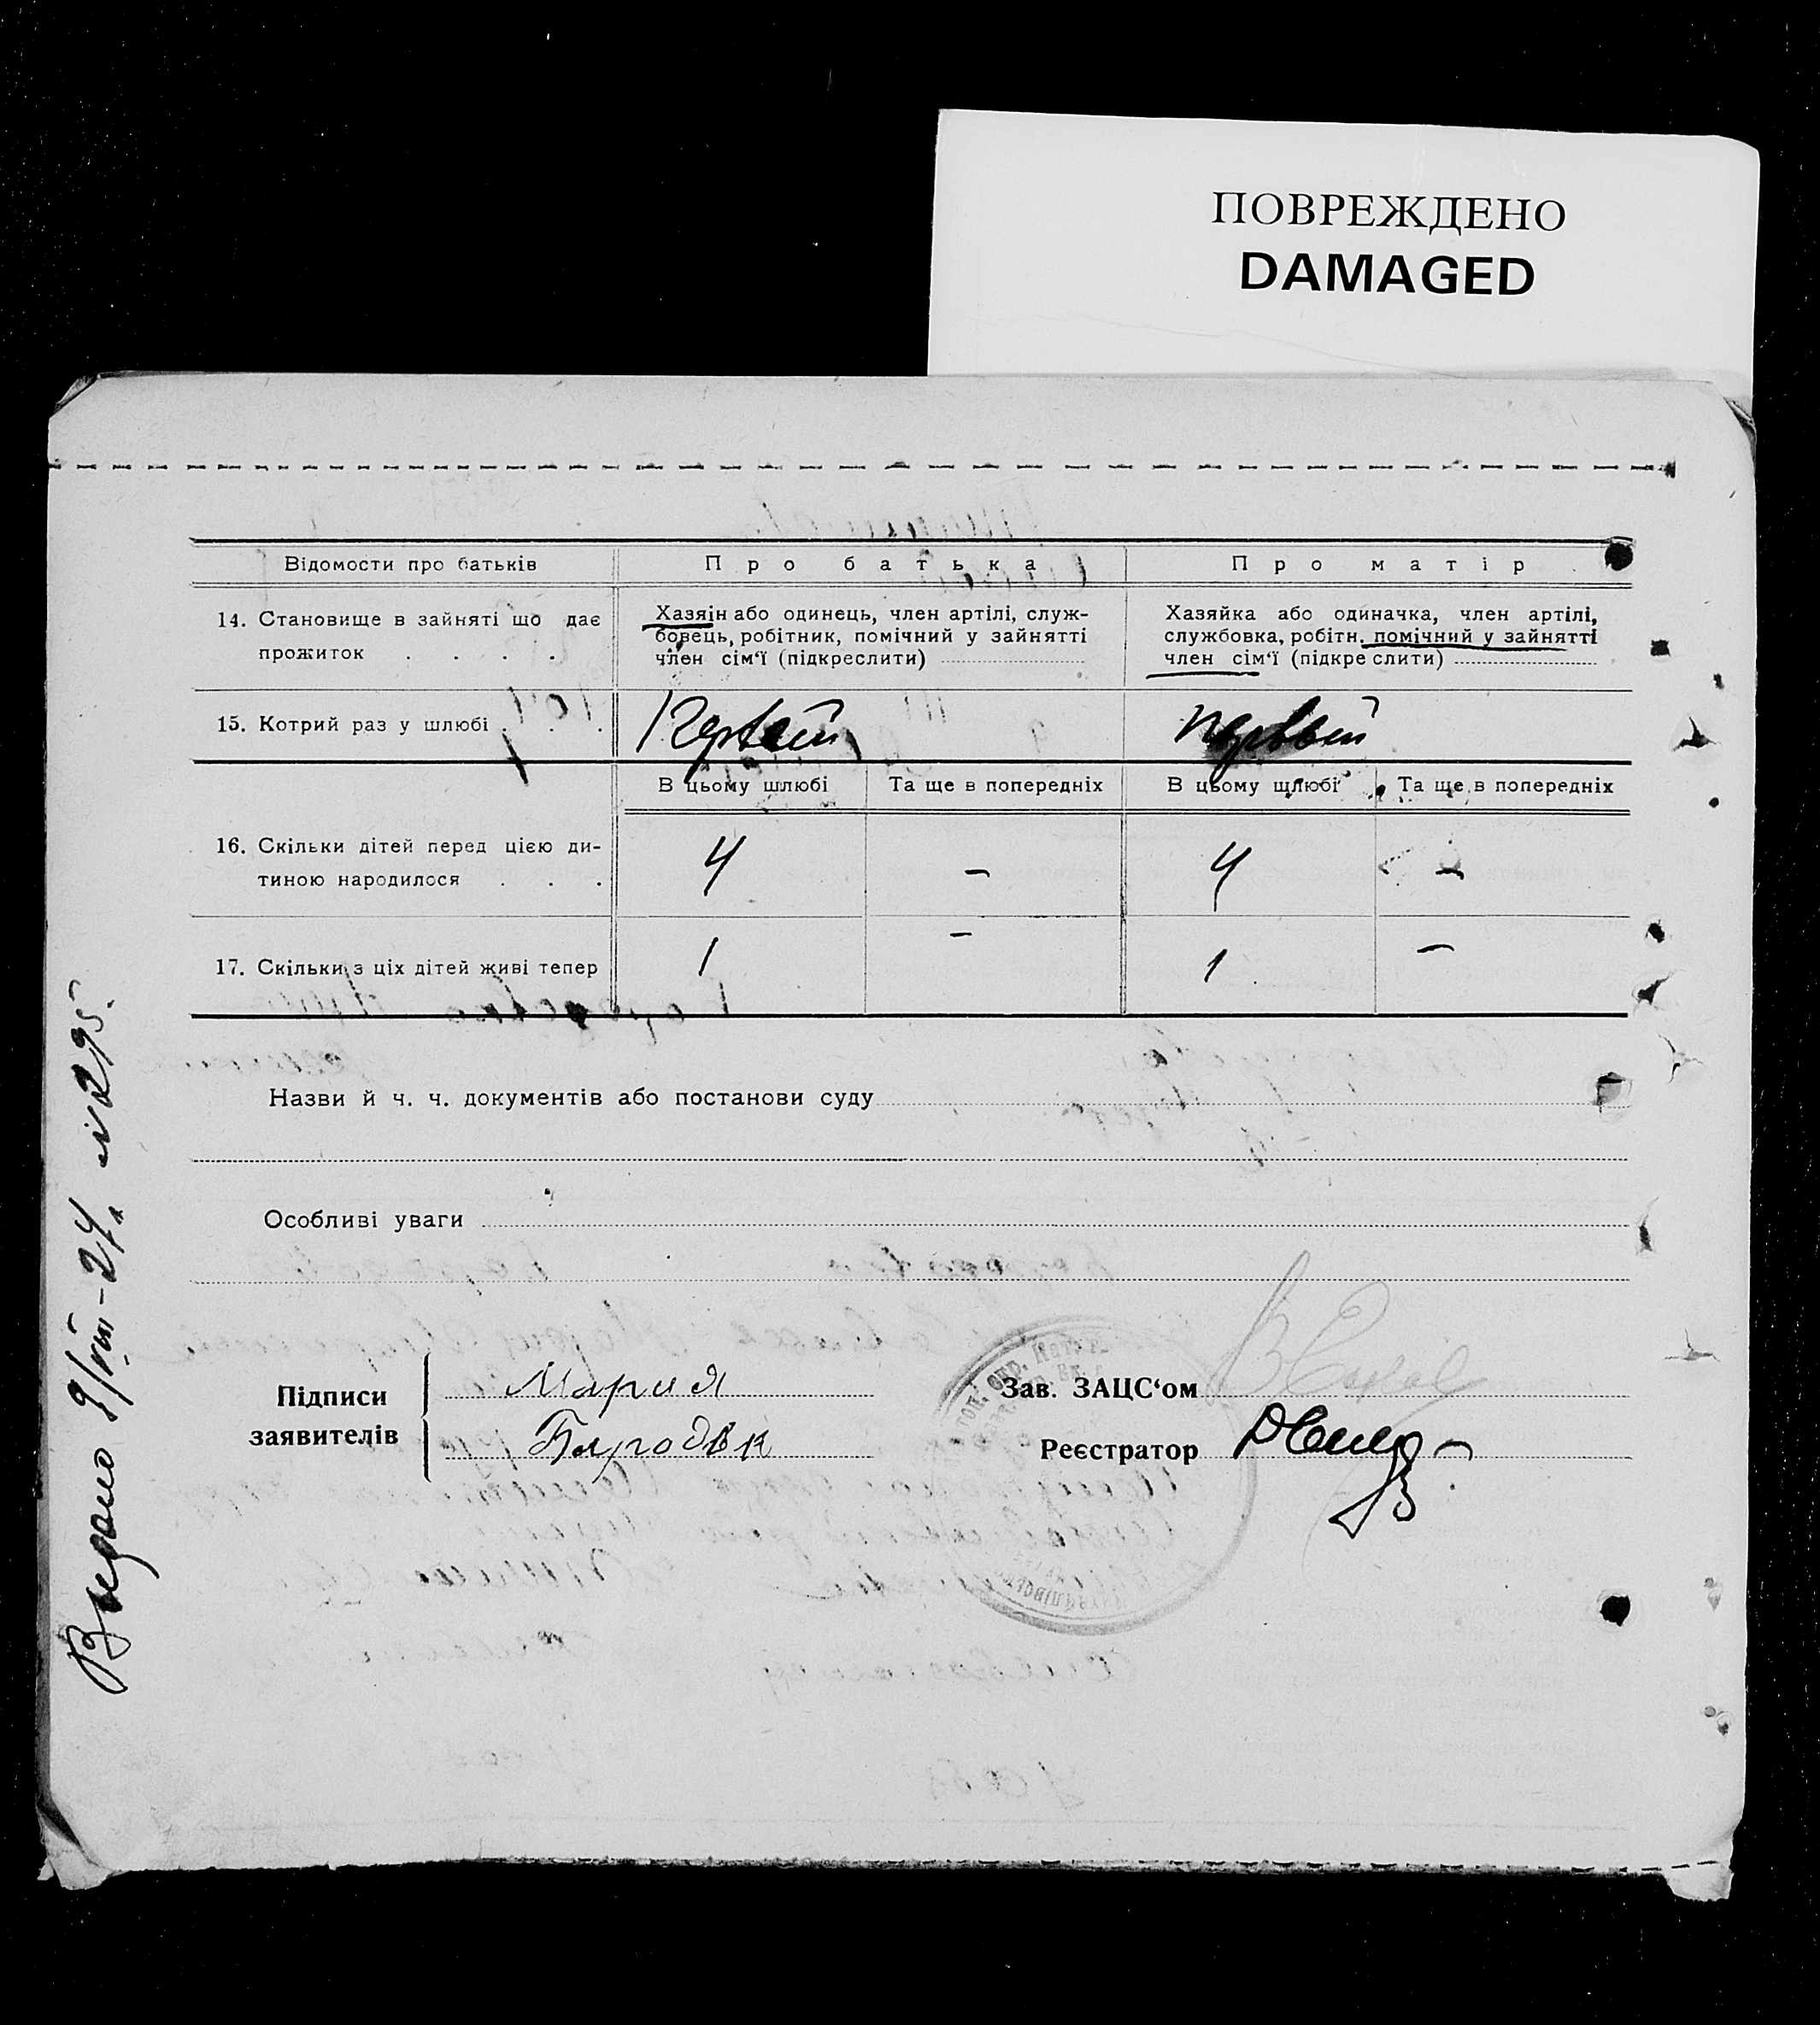 ПОВРЕЖДЕНО
DAMAGED
Відомости про батьків
Про батька
Про матір
14. Становище в зайняті що дає
прожиток . . . .
Хазяїн або одинець, член артілі, служ-
бовець, робітник, помічний у зайнятті
член сім‘ї (підкреслити)
Хазяйка або одиначка, член артілі,
службовка, робітн. помічний у зайнятті
член сім‘ї (підкреслити)
15. Котрий раз у шлюбі . . .
Первый
первый
В цьому шлюбі
Та ще в попередніх
В цьому шлюбі
Та ще в попередніх
16. Скільки дітей перед цією ди-
тиною народилося . . .
4
–
4
–
17. Скільки з ціх дітей живі тепер
1
–
1
–
Назви й ч. ч. документів або постанови суду
Особливі уваги
Підписи
заявителів
Мария
Зав. ЗАЦС‘ом
Реєстратор
Выдано 9/VIII-24, №295.